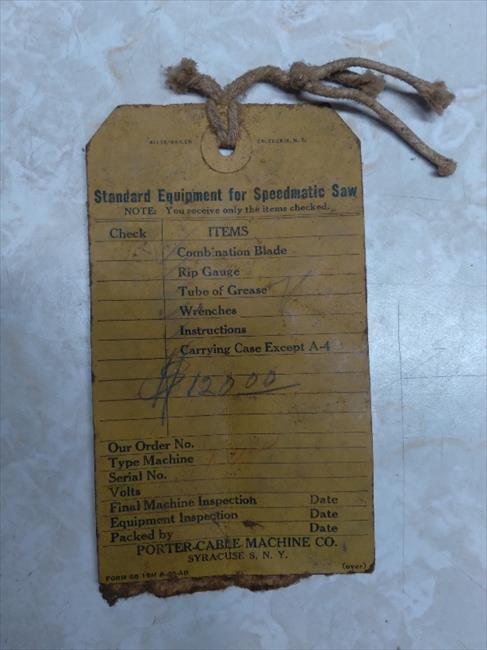 CALEDONIA, N. Y.
Standard Equipment for Speedmatic Saw
NOTE: You receive only the items checked.
Check ITEMS
Combination Blade
Rip Gauge
Tube of Grease
Wrenches
Instructions
Carrying Case Except A-4
$120.00
Our Order No.
Type Machine
Serial No.
Volts
Final Machine Inspection Date
Equipment Inspection Date
Packed by Date
PORTER-CABLE MACHINE CO.
SYRACUSE 8, N. Y.
FORM (over)